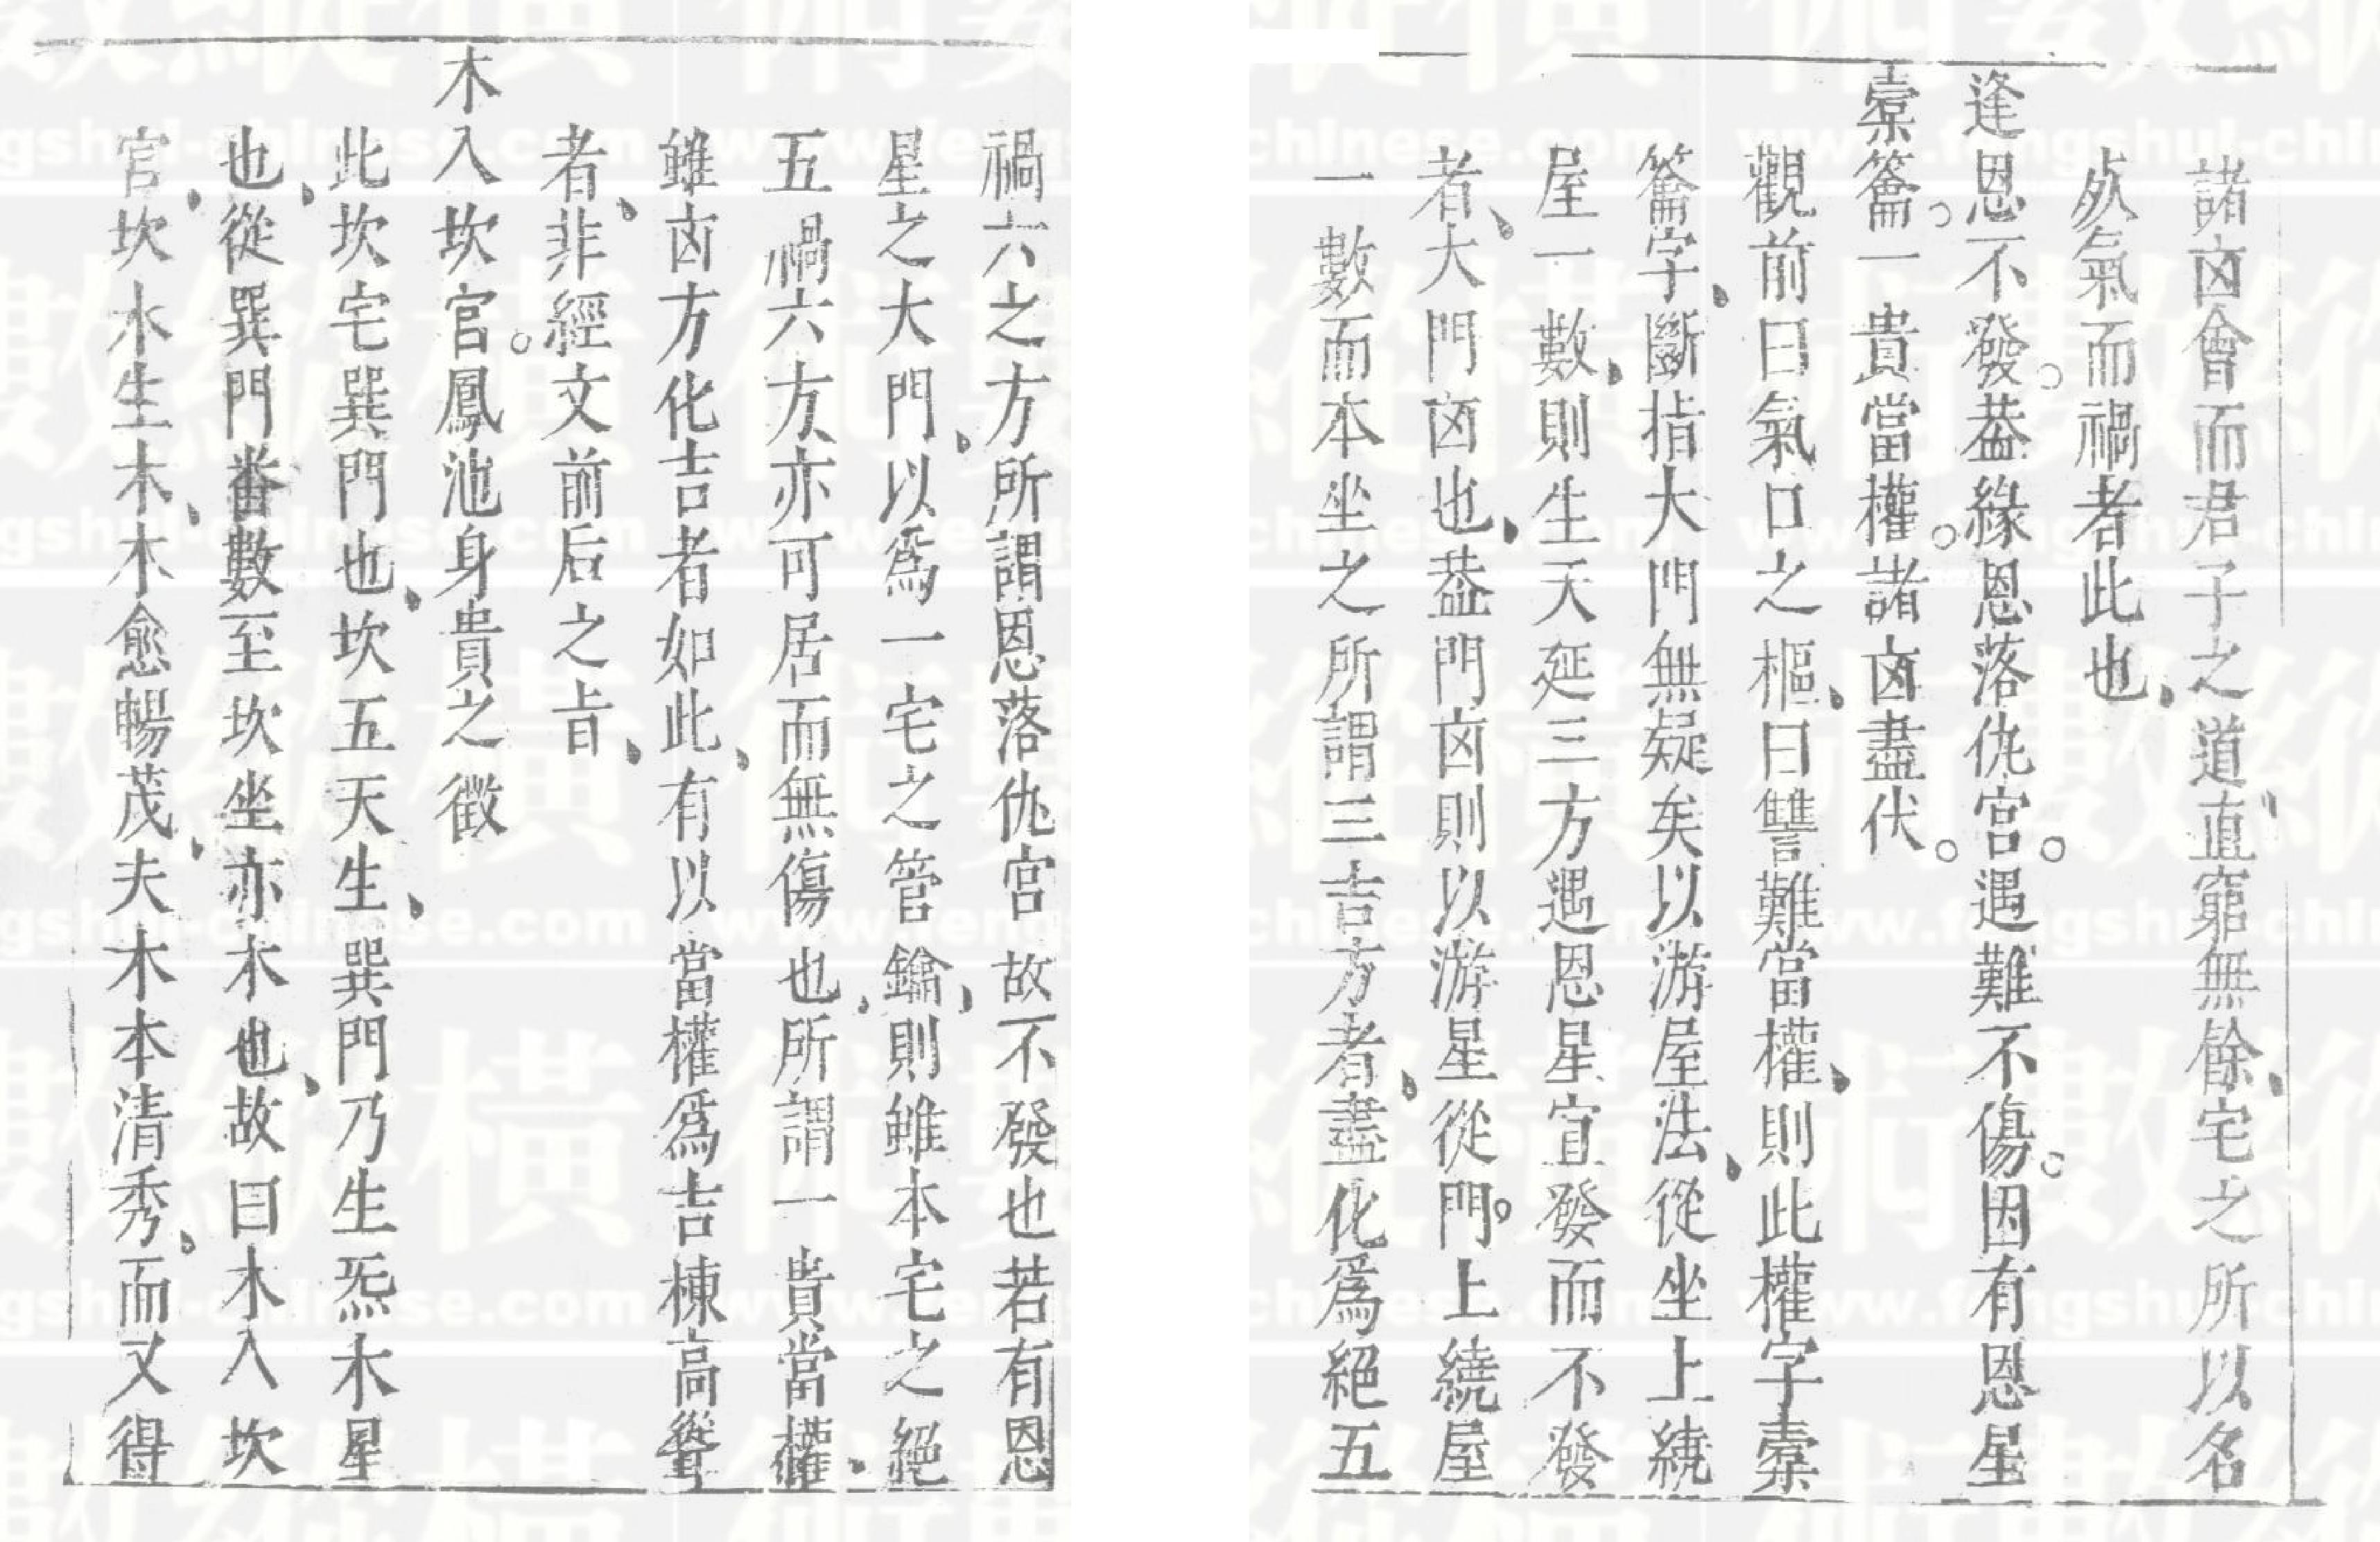 諸凶會而君子之道直窮無餘宅之所以名
䖏氣而禍者此也
逢恩不發葢緣恩落仇宮遇難不傷因有恩星
橐籥一貴當權諸凶盡伏
觀前曰氣口之樞曰讐難當權則此權字橐
籥字斷指大門無疑矣以游屋法從坐上繞
屋一數則生天延三方遇恩星宜發而不發
者大門凶也葢門凶則以游星從門上繞屋
一數而本坐之所謂三吉方者盡化爲絕五
禍六之方所謂恩落仇宮故不發也若有恩
星之大門以爲一宅之管鑰則雖本宅之絕
五禍六方亦可居而無傷也所謂一貴當權
雖凶方化吉者如此有以當權爲吉棟高聳
者非經文前后之旨
木入坎宮鳳池身貴之徵
此坎宅巽門也坎五天生巽門乃生炁木星
也從巽門番數至坎坐亦木也故曰木入坎
宮坎水生木木愈暢茂夫木本清秀而又得